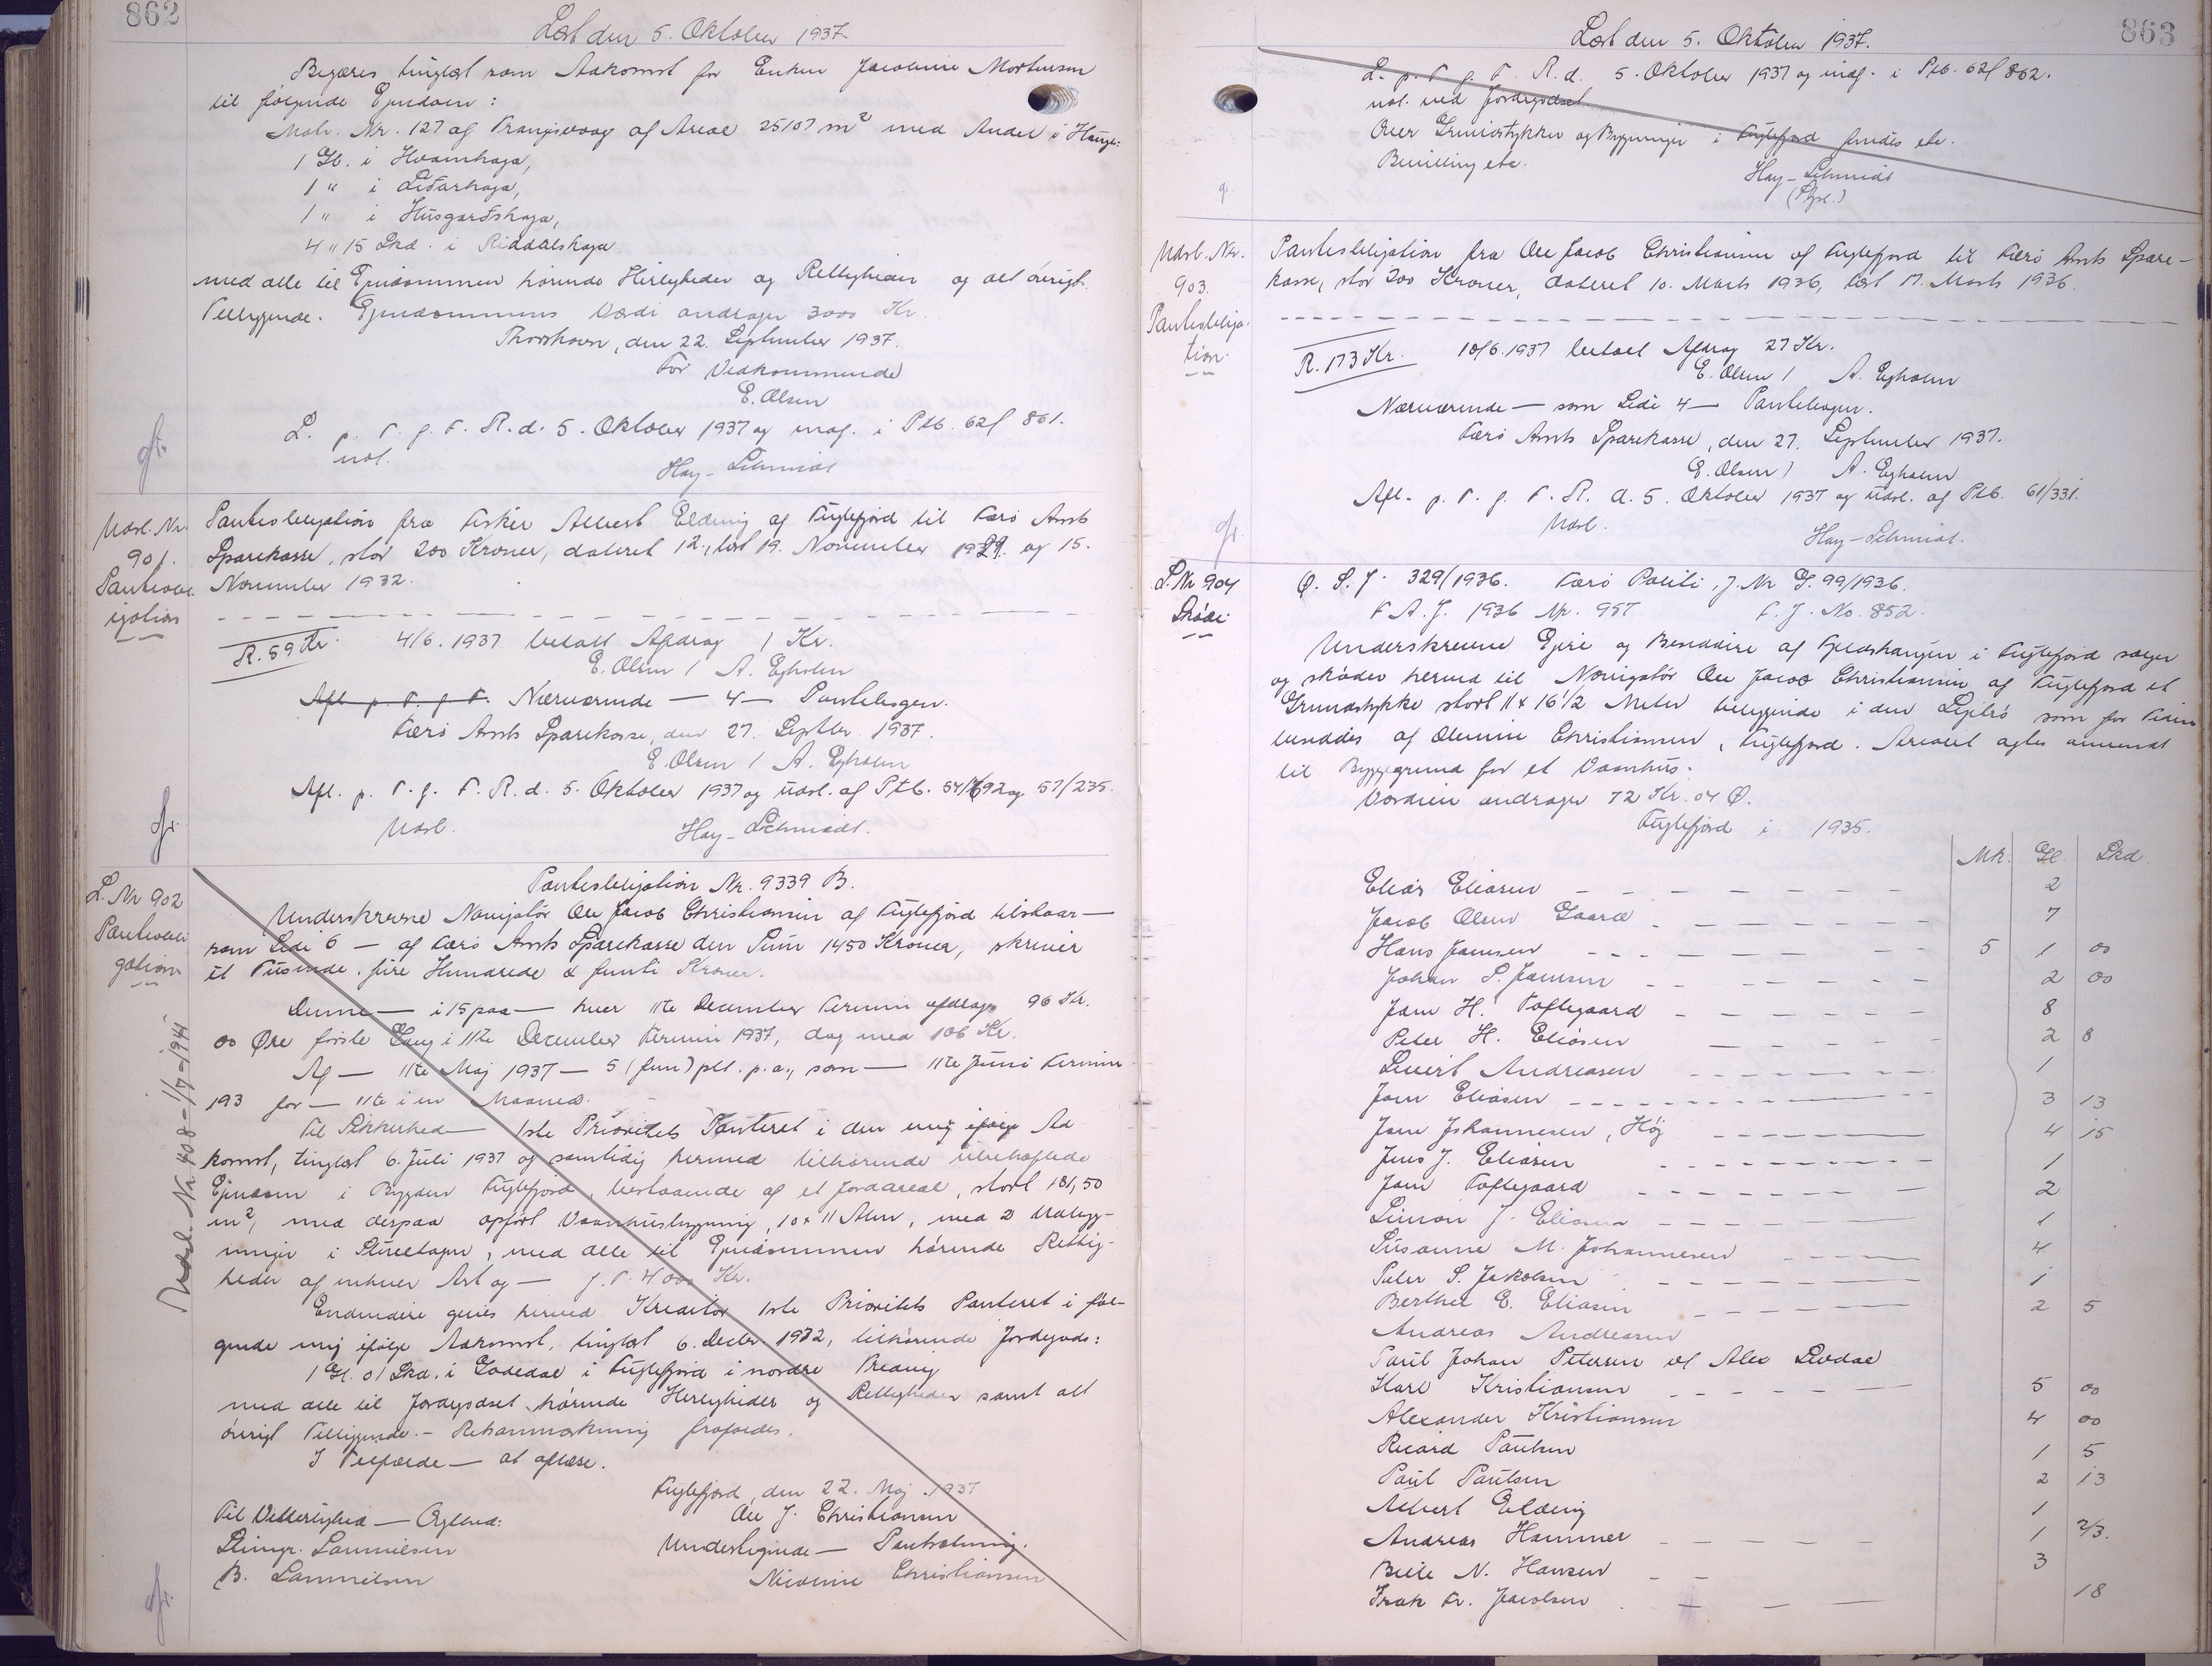 862
Læst den 5. Oktober 1937.
Begæres tinglæst som Adkomst for Enken Jacobine Mortensen
til følgende Ejendom:
Matr. Nr. 127 af Trangisvaag af Areal 25107 m² med Andel i Haugen:
1 Gl. i Hvamhaga,
1 " i Lidarhaga,
1 " i Husgardshaga,
4 " 15 Skd. i Riddalshaga.
med alle til Ejendommen hørende Herligheder og Rettigheder og alt øvrigt
Tilliggende. Ejendommens Værdi andrager 3000 Kr.
Thorshavn, den 22. September 1937.
For Vedkommende
E. Olsen
L. p. T. g. F. R. d. 5. Oktober 1937 og indf. i Ptb. 62f 861.
ual.
Hay-Schmidt
Udsl. Nr.
901.
Panteobl-
igation
Panteobligation fra Fisker Albert Elding af Fuglefjord til Færø Amts
Sparekasse, stor 200 Kroner, dateret 12., læst 19. November 1929. og 15.
November 1932.
R. 59 Kr. 4/6. 1937 betalt Afdrag 1 Kr.
E. Olsen / A. Egholm
Afl. p. T. g. F. Nærværende — 4 — Pantebogen.
Færø Amts Sparekasse, den 27. Septbr. 1937.
E. Olsen / A. Egholm
Afl. p. T. g. F. R. d. 5. Oktober 1937 og udsl. af Ptb. 54/692 og 57/235.
Udsl.
Hay-Schmidt.
L. Nr 902
Panteobli
gation
Udsl. Nr. 408 - 1/7-1941
Panteobligation Nr. 9339 B.
Underskrevne Navigatør Ole Jacob Christiansen af Fuglefjord tilstaar —
som Side 6 — af Færø Amts Sparekasse den Sum 1450 Kroner, skriver
et Tusinde, fire Hundrede & femti Kroner.
Denne — i 15 paa — hver 11te December Termin afdrages 96 Kr.
00 Øre første Gang i 11te December Termin 1937, dog med 106 Kr.
Af — 11te Maj 1937 — 5 (fem) pCt. p. a., som — 11te Juni Termin
193 for — 11te i en Maaned.
Til Sikkerhed — 1ste Prioritets Panteret i den mig ifølge Ad
komst, tinglæst 6. Juli 1937 og samtidig hermed tilhørende ubehæftede
Ejendom i Bygden Fuglefjord, bestaaende af et Jordareal, stort 181,50
m², med derpaa opført Vaanhusbygning, 10 x 11 Alen, med 2 Udbyg-
ninger i Størrelsen, med alle til Ejendommen hørende Rettig-
heder af enhver Art og — J. T. 4000 Kr.
Endvidere gives herved Kreditor 1ste Prioritets Panteret i føl-
gende mig ifølge Adkomst, tinglæst 6. Decbr 1932, tilhørende Jordegods:
1 Gl. 01 Skd. i Godedal i Fuglefjord i nordre Treding
med alle til Jordegodset hørende Herligheder og Rettigheder samt alt
øvrigt Tilliggende. — Retsanmærkning frafaldes.
I Tilfælde — at aflæse.
Fuglefjord, den 22. Maj 1937
Til Vitterlighed — Ægthed: Ole J. Christiansen
Steingr. Samuelsen Underliggende — Pantsætning.
B. Samuelsen Nicoline Christiansen
863
Læst den 5. Oktober 1937.
L. p. T. g. F. R. d. 5. Oktober 1937 og indf. i Ptb. 62f 862.
ual. ved Jordegodset.
Over Grundstykker og Bygninger i Fuglefjord findes etc.
Bevilling etc.
Hay-Schmidt
Udsl. Nr.
903.
Panteobliga-
tion.
Panteobligation fra Ole Jacob Christiansen af Fuglefjord til Færø Amts Spare-
kasse, stor 200 Kroner, dateret 10. Marts 1936, læst 17. Marts 1936.
R. 173 Kr. 10/6. 1937 betalt Afdrag 27 Kr.
E. Olsen / A. Egholm
Nærværende — som Side 4 — Pantebogen.
Færø Amts Sparekasse, den 27. September 1937.
E. Olsen / A. Egholm
Afl. p. T. g. F. R. d. 5. Oktober 1937 og udsl. af Ptb. 61/331.
Udsl.
Hay-Schmidt.
L. Nr 904
Skøde
Ø. S. J. 329/1936. Færø Politi, J. Nr G. 99/1936.
F. A. J. 1936 Nr. 957 F. J. No. 852.
Underskrevne Ejere og Besiddere af Fjeldshaugen i Fuglefjord sælger
og skøder herved til Navigatør Ole Jacob Christiansen af Fuglefjord et
Grundstykke stort 11 x 16 1/2 Meter beliggende i den Lejebø som før Tiden
besiddes af Olemine Christiansen, Fuglefjord. Arealet agtes anvendt
til Byggegrund for et Vaanhus.
Værdien andrager 72 Kr. 04 Ø.
Fuglefjord i 1935.
Mk. Gl. Skd.
Eliás Eliasen 2
Jacob Olsen Gaard 7
Hans Joensen 5 1 00
Johan S. Joensen 2 00
Joen H. Toftegaard 8
Peter H. Eliasen 2 8
Sivert Andreasen 1
Joen Eliasen 3 13
Joen Johannesen, Høj 4 15
Jens J. Eliasen 1
Joen Toftegaard 2
Simon J. Eliasen 1
Susanne M. Johannesen 4
Peter S. Jakobsen 1
Berthel E. Eliasen 2 5
Andreas Andreasen
Poul Johan Petersen vf Alex Livdal
Karl Kristiansen 5 00
Alexander Kristiansen 4 00
Ricard Paulsen 1 5
Paul Paulsen 2 13
Albert Elding 1
Andreas Hammer 1 2/3.
Bille N. Hansen 3
Isak Fr. Jacobsen 18